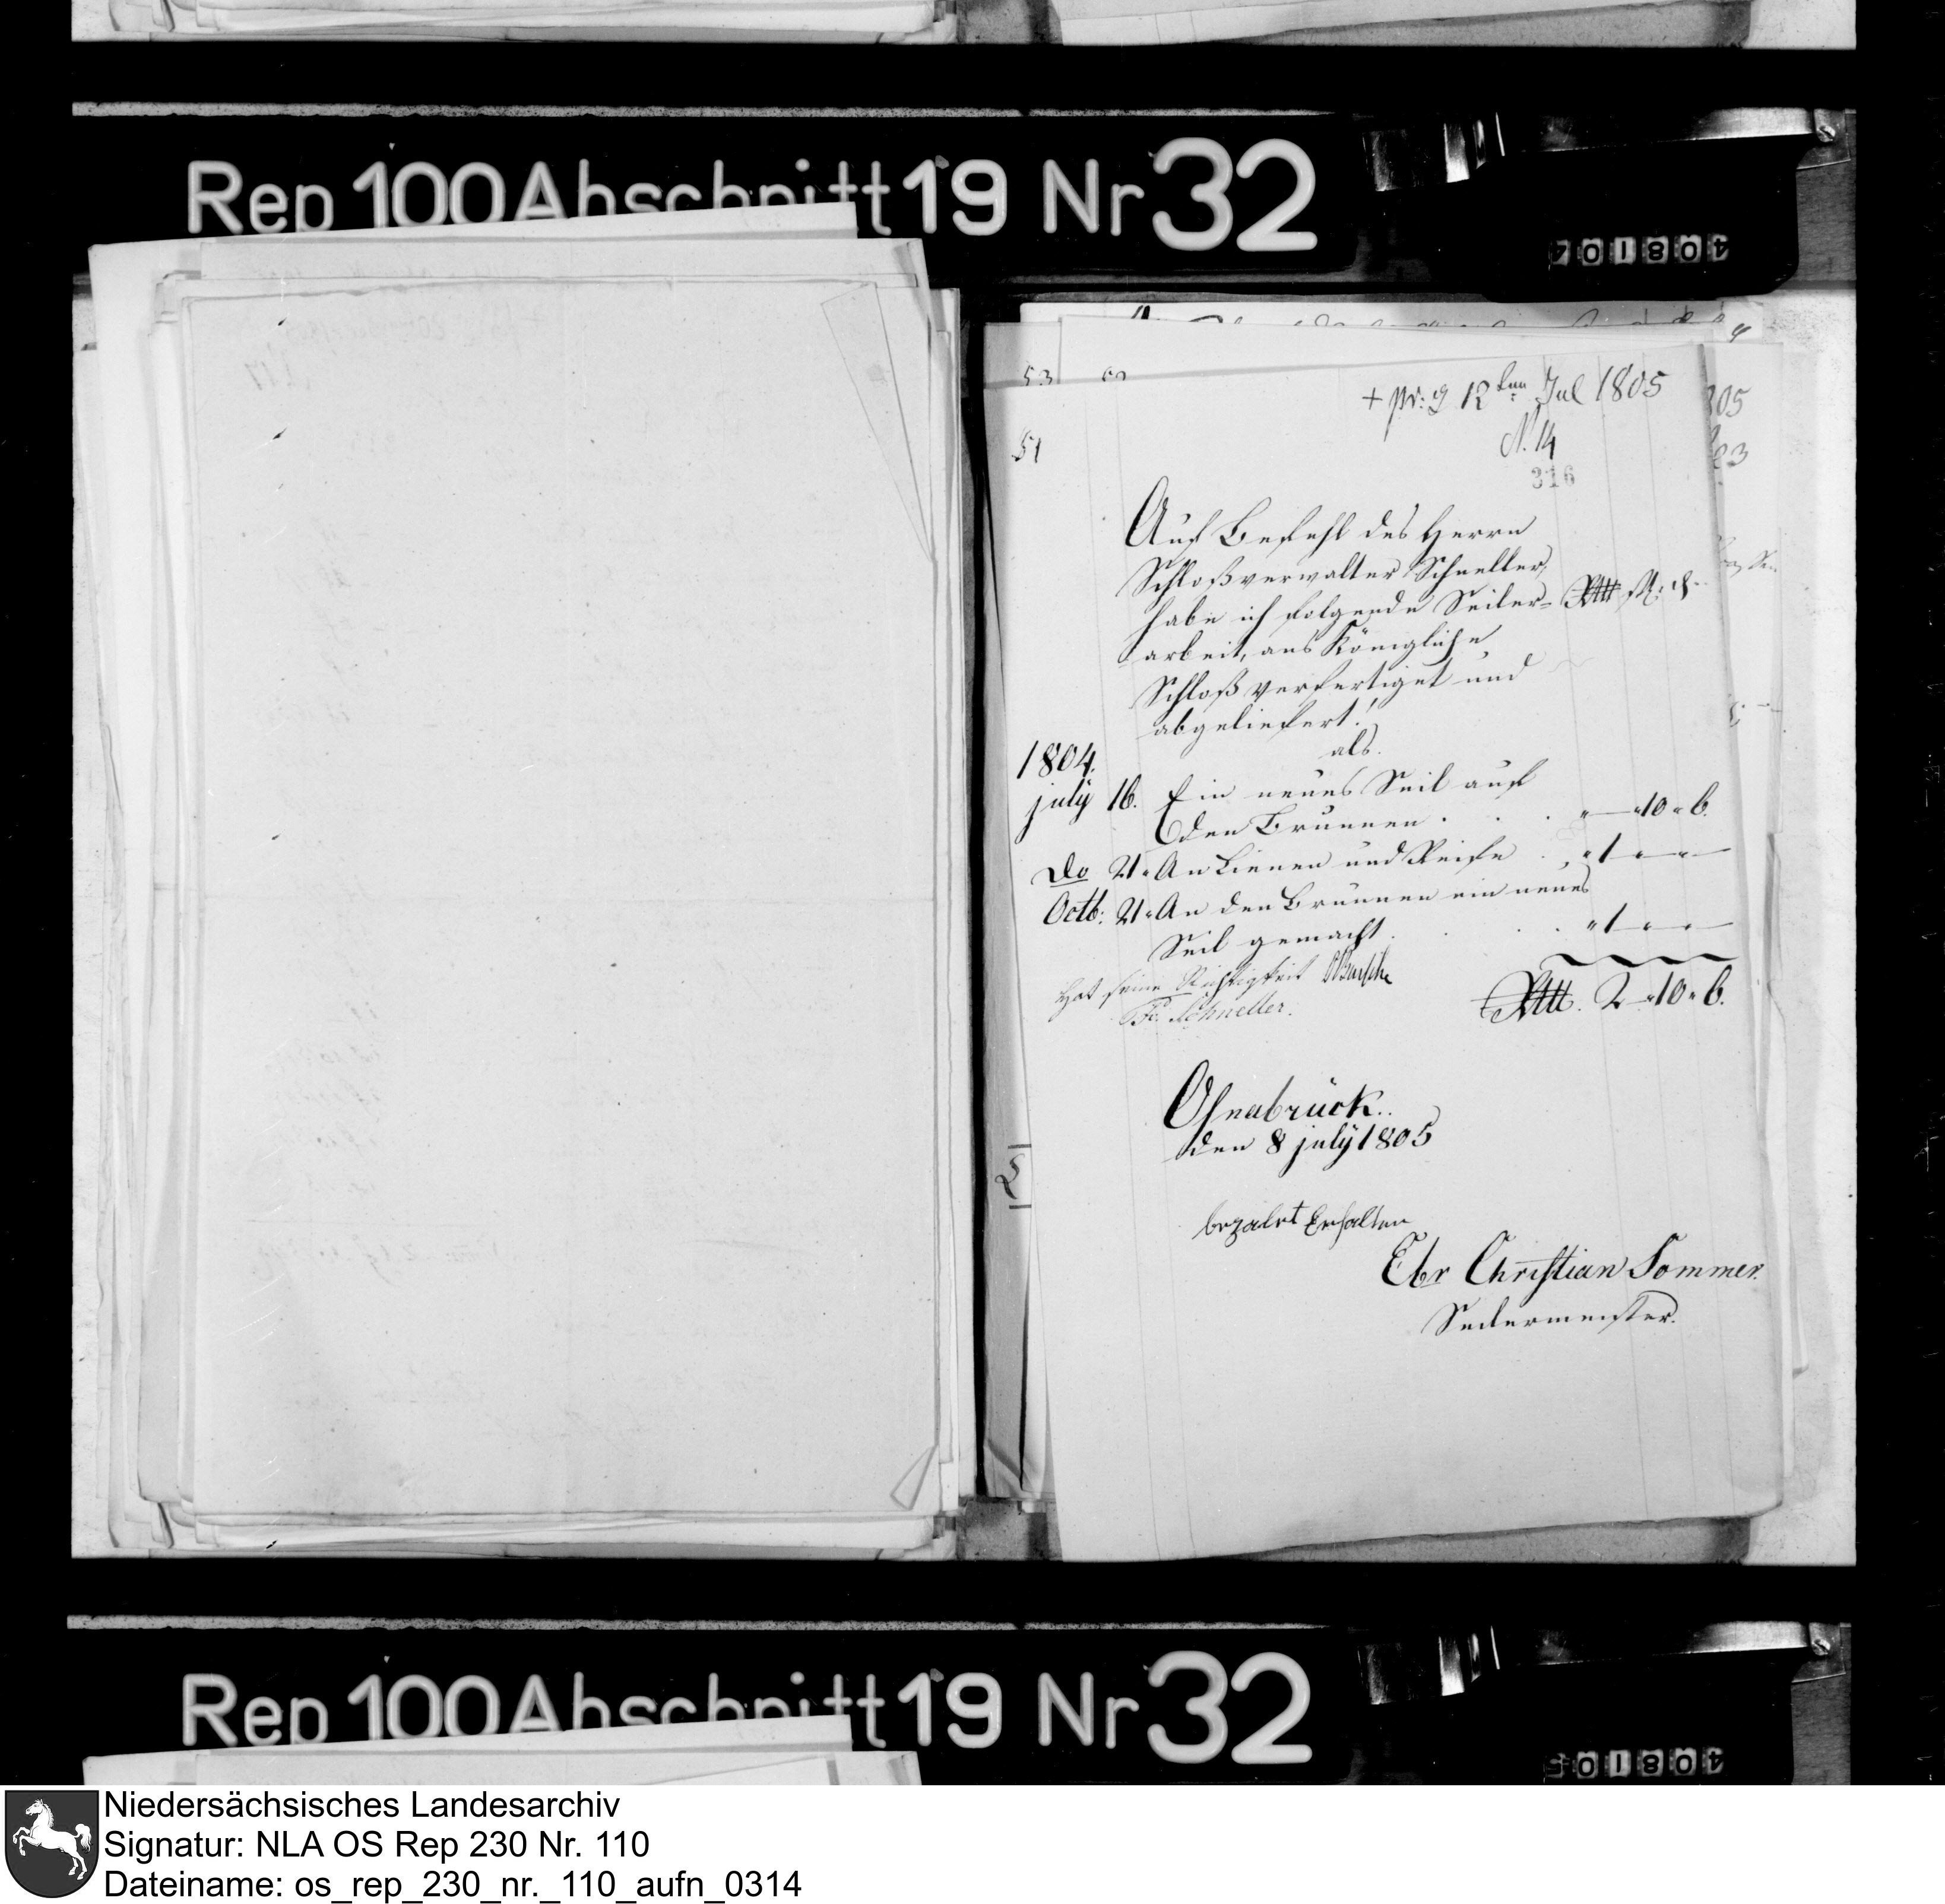 Rep 100 Abschnitt 19 Nr 32
401804
+ pr: 12ten Jul 1805
N. 14
316
53
51
805
Auf Befehl des Herrn
Schloßverwalter Schneller,
habe ich folgende Seiler-
arbeit, ans Königliche
Schloß verfertiget und
abgeliefert!
als.
1804.
july 16. Ein neues Seil auf
den Brunnen . . . " — " 10 " 6.
Do 21 " An Lienen und Reife . " 1 " — " —
Octb: 21 " An den Brunnen ein neues
Seil gemacht . . . . " 1 " — " —
Hat seine Richtigkeit
Fr. Schneller.
Rtll. 2 — " 10 " 6.
Osnabrück..
den 8 july 1805
bezalet Erhalten
Ebr Christian Sommer.
Seilermeister.
Rep 100 Abschnitt 19 Nr 32
401805
Niedersächsisches Landesarchiv
Signatur: NLA OS Rep 230 Nr. 110
Dateiname: os_rep_230_nr._110_aufn_0314